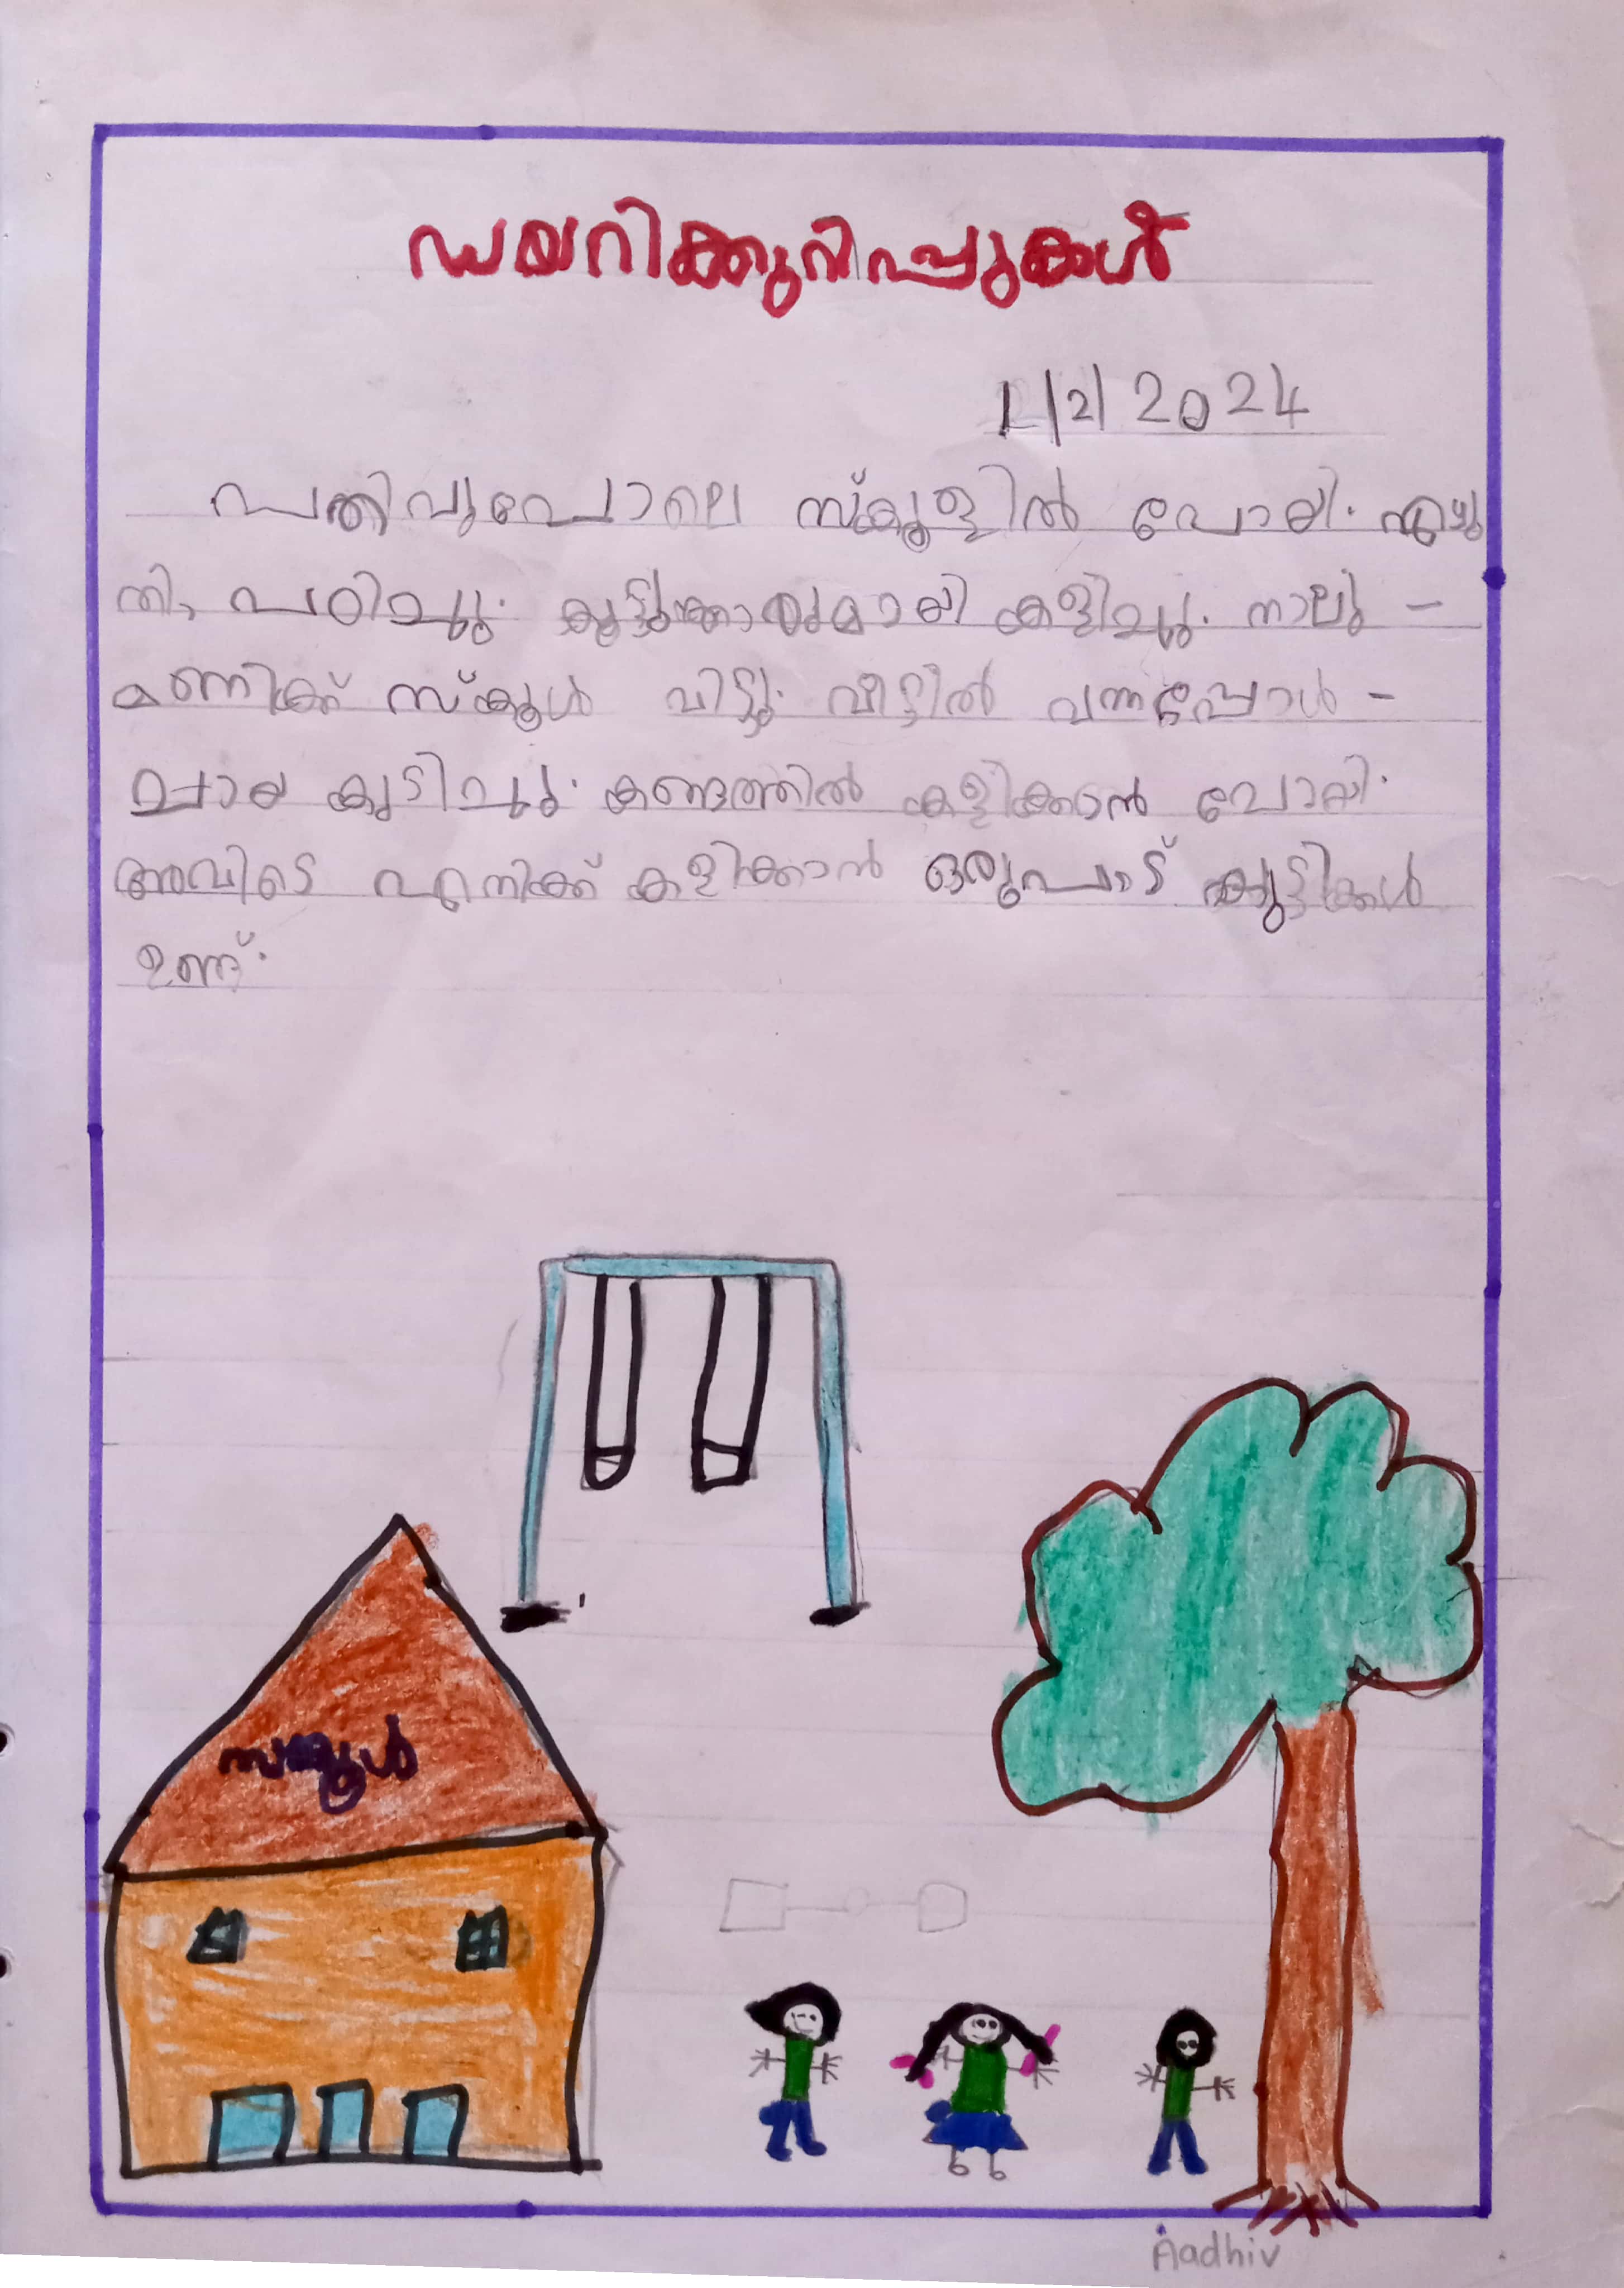 ഡയറിക്കുറിപ്പുകൾ
1/2/2024
പതിവുപോലെ സ്കൂളിൽ പോയി. എഴു
തി, പഠിച്ചു. കൂട്ടുക്കാരുമായി കളിച്ചു. നാലു -
മണിക്ക് സ്കൂൾ വിട്ടു. വീട്ടിൽ വന്നപ്പോൾ -
ചായ കുടിച്ചു. കണ്ടത്തിൽ കളിക്കാൻ പോയി.
അവിടെ എനിക്ക് കളിക്കാൻ ഒരുപാട് കുട്ടികൾ
ഉണ്ട്.
സ്കൂൾ
Aadhiv